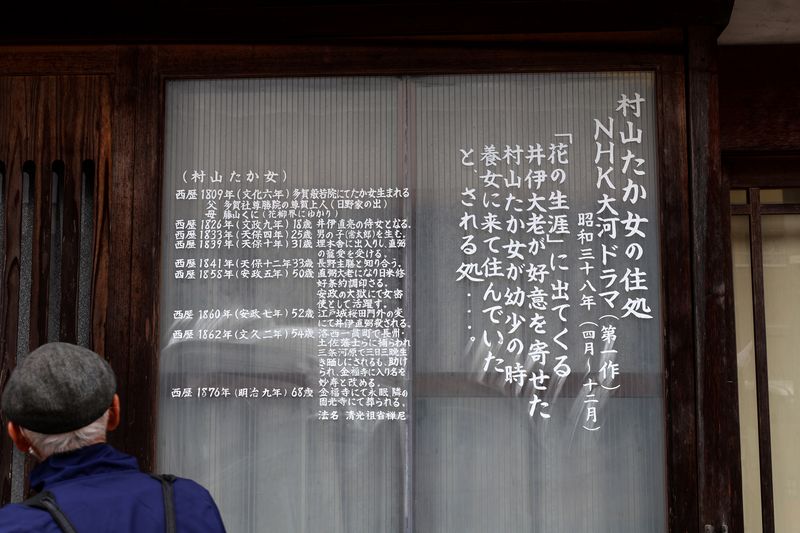 村山たか女の住処
NHK大河ドラマ(第一作)
昭和三十八年(四月～十二月)
「花の生涯」に出てくる
井伊大老が好意を寄せた
村山たか女が幼少の時
養女に来て住んでいた
と、される処・・・・。
(村山たか女)
西歴 1809年(文化六年) 多賀般若院にてたか女生まれる
父 多賀社尊勝院の尊賀上人(日野家の出)
母 藤山くに(花柳界にゆかり)
西歴 1826年(文政九年) 18歳 井伊直亮の侍女となる。
西歴 1833年(天保四年) 25歳 男の子(常太郎)を生む。
西歴 1839年(天保十年) 31歳 埋木舎に出入りし、直弼
の寵愛を受ける。
西歴 1841年(天保十二年) 33歳 長野主膳と知り合う。
西歴 1858年(安政五年) 50歳 直弼大老になり日米修
好条約調印さる。
安政の大獄にて女密
使として活躍す。
西歴 1860年(安政七年) 52歳 江戸城桜田門外の変
にて井伊直弼殺される。
西歴 1862年(文久二年) 54歳 洛西一貫町で長州・
土佐藩士らに捕われ
三条河原で三日三晩生
き晒しにされるも、助け
られ、金福寺に入り名を
妙寿と改める。
西歴 1876年(明治九年) 68歳 金福寺にて永眠 隣の
圓光寺にて葬られる。
法名 清光祖省禅尼